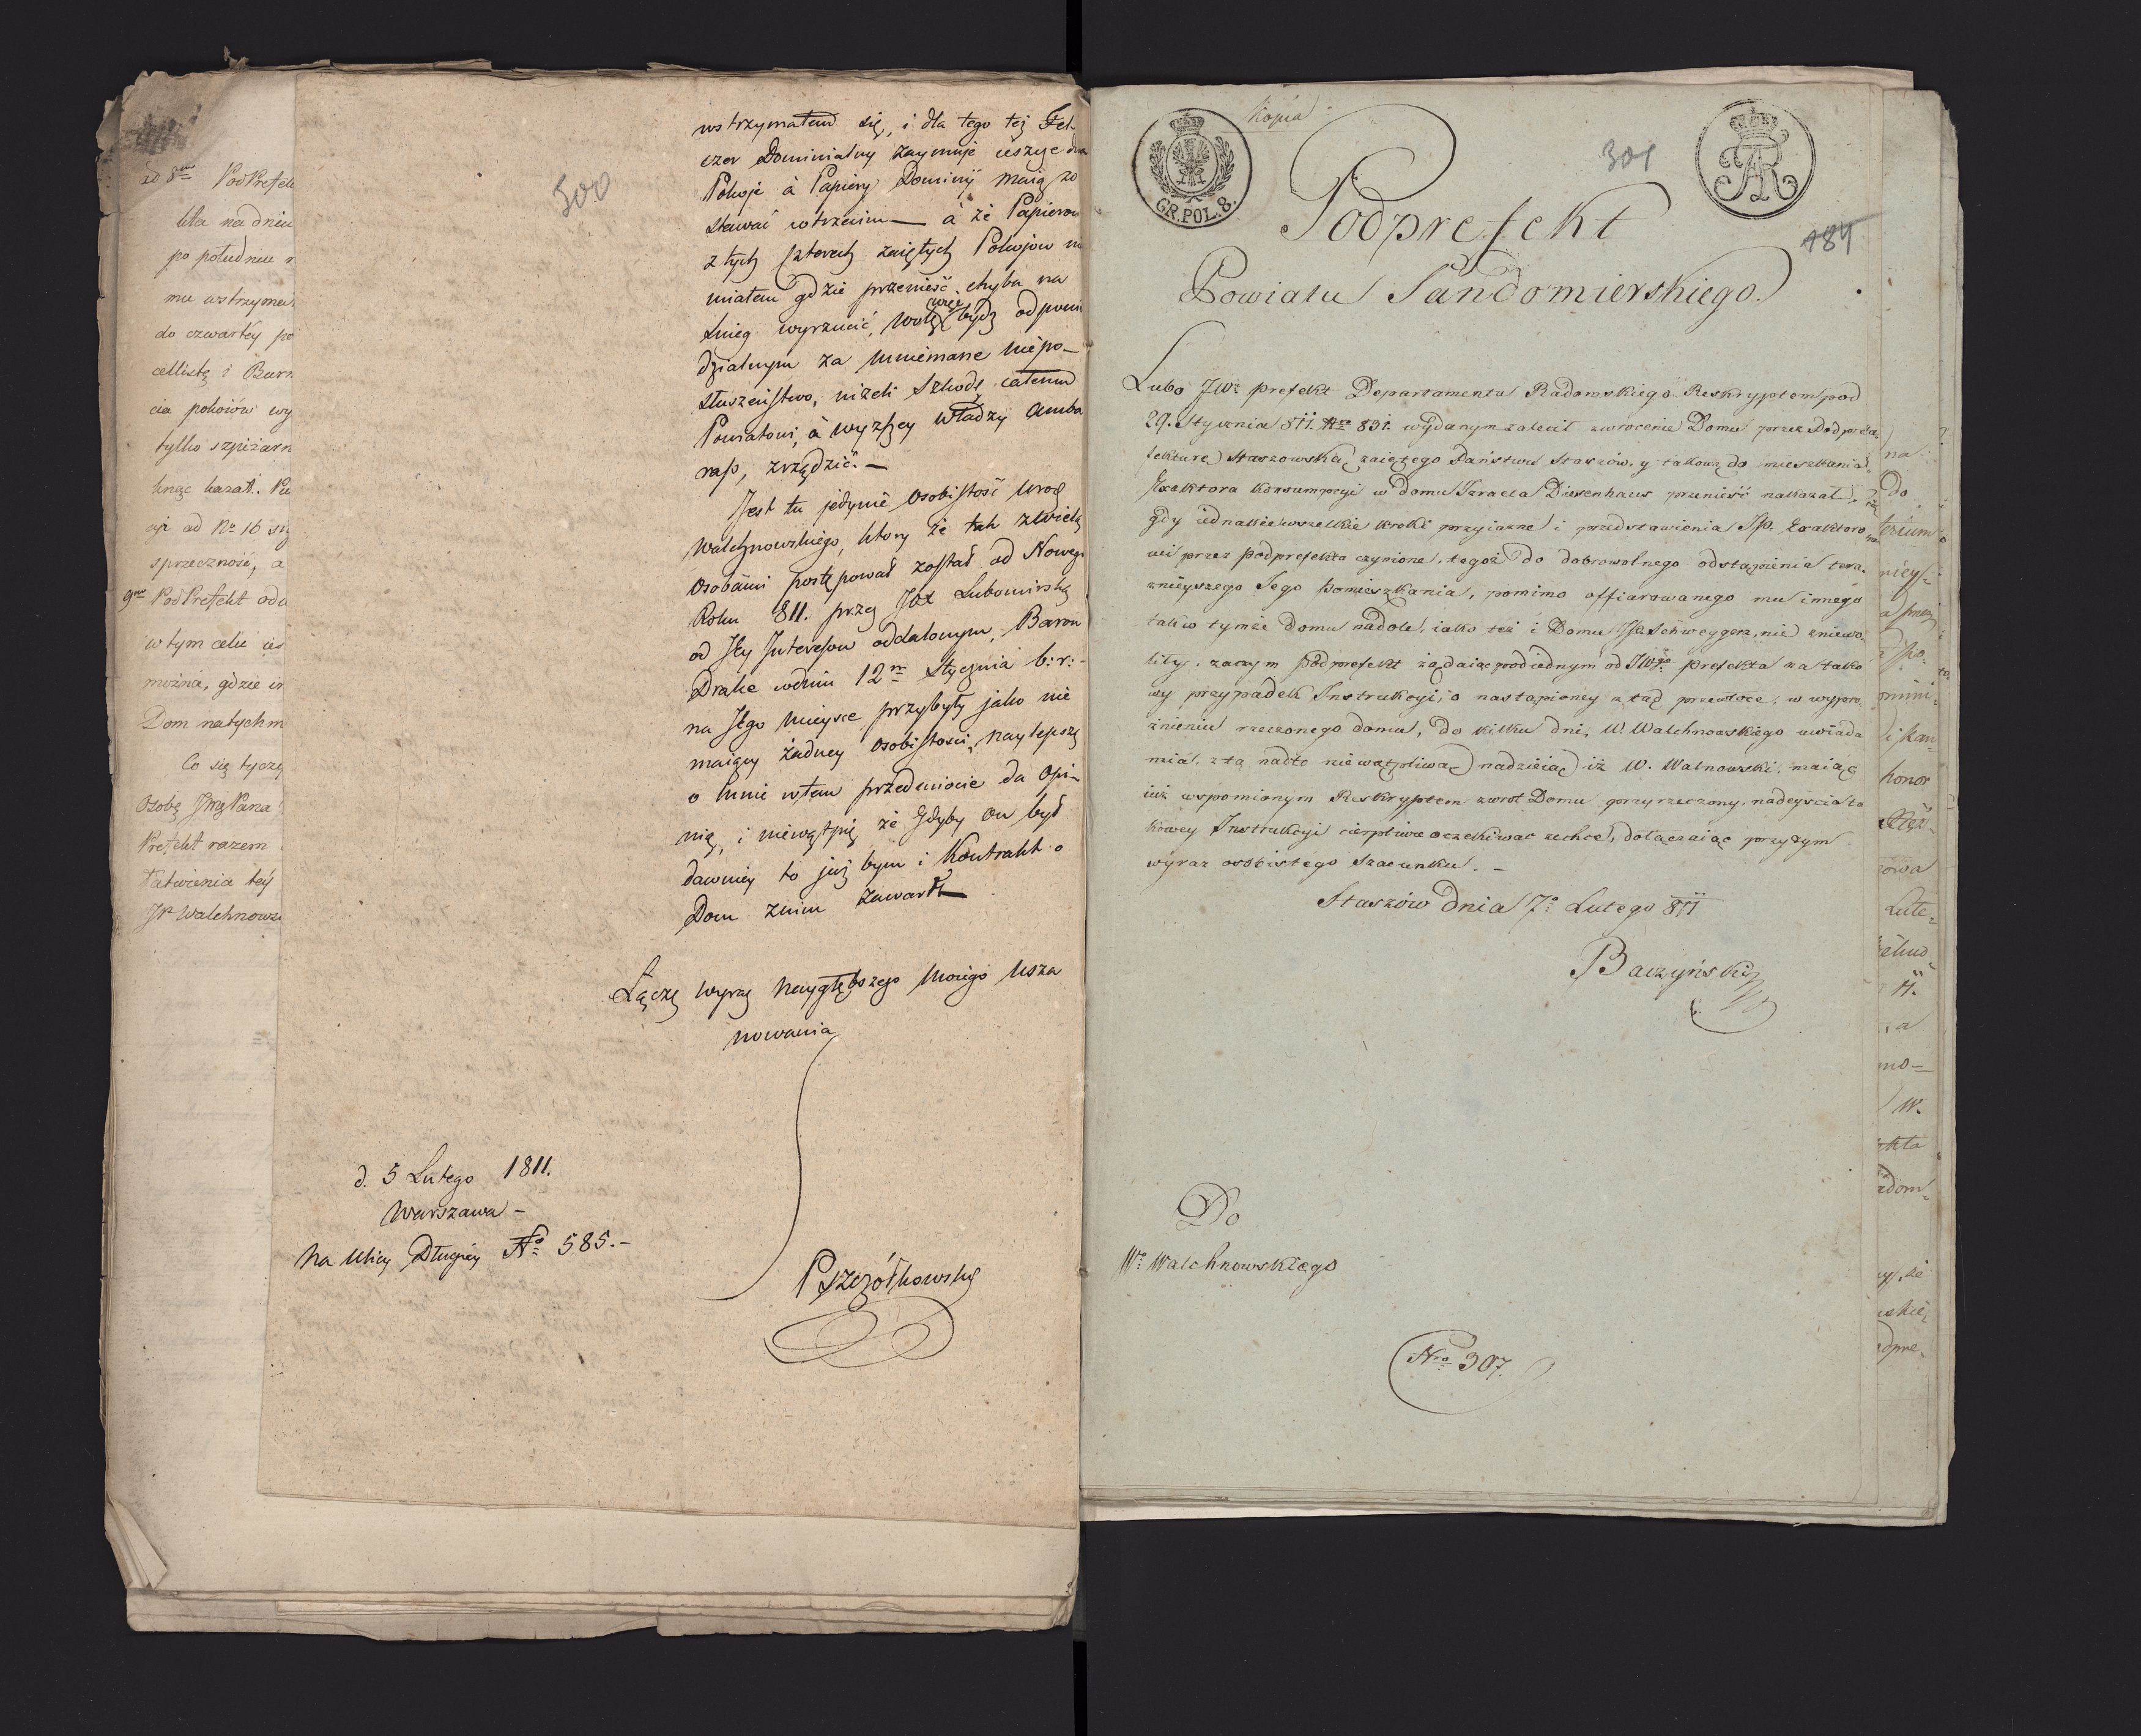 ad 8vo PodPrefek
kta na dniu
po południu
mu wstrzyma
do czwartéy po
cellistę i Burm
cia pokoiów wy
tylko szpiżarn
knąc kazał.
od No 16
sprzeczność, a
9no PodPrefekt
w tym celu
można, gdzie
Dom natychm
Co się tycze
Osobę JWgPana
Prefekt razem
łatwienia téy
JP Walchnows
300
wstrzymałem się, i dla tego też Fel
czer Dominialny zaymuje ieszcze dwa
Pokoje à Papiery Dominij maią zo
stawać wtrzecim — à że Papierow
z tych czterech zaiętych Pokojow nie
miałem gdzie przenieść chyba na
śnieg wyrzucić, wolę więc bydź odpowie
dzialnym za mniemane niepo-
słuszeństwo, niżeli szkodę całemu
Powiatowi, à wyższey władzy amba
rass, zrządzić. —
Jest tu jedynie osobistość Uro
Walchnowskiego, ktory że tak z wielą
osobami postępował został od Nowego
Roku 811. przez JOX Lubomirską
od Jey Interessow oddalonym, Baron
Drake wdniu 12m Stycznia b: r: -
na Jego mieysce przybyły jako nie
maiący żadney osobistości, naylepszą
o mnie wtem przedmiocie da opi-
nią, i niewątpię że gdyby on był
dawniey to już bym i Kontrakt o
Dom znim zawarł —
Łączę wyraz naygłębszego mojego usza
nowania
d. 5 Lutego 1811.
Warszawa -
na Ulicy Długiéy No 585. -
Pszczółkowski
Kopia
GR. POL. 8.
301
184
Podprefekt
Powiatu Sandomierskiego.
Lubo JWż prefekt Departamentu Radomskiego Reskryptem pod
29. Stycznia 811. Nro 831. wydanym zalecił zwrocenie Domu przez Podpre
fekturę Staszowską zaiętego Państwu Staszów, y takową do mieszkania
Exaktora Konsumpcyi w domu Izraela Diesenhaus przenieść nakazał,
gdy iednakże wszelkie kroki przyiazne i przedstawienia Jp. Exaktoro
wi przez podprefekta czynione, tegoż do dobrowolnego odstąpienia tera
znieyszego Jego pomieszkania, pomimo offiarowanego mu innego
tak w tymże domu na dole, iako też i Domu JP. Schweygerz, nie zniewo
liły, zaczym podprefekt żądaiąc pod iednym od JWgo prefekta na tako
wy przypadek Instrukcyi, o nastąpioney z tąd przewłoce, w wypro
żnieniu rzeczonego domu, do kilku dni, W. Walchnowskiego uwiada
mia. z tą nadto niewątpliwą nadzieią iż W. Walnowski, maiąc
iuż wspomionym Reskryptem zwrot Domu przyrzeczony, nadeyścia ta
kowey Instrukcyi cierpliwie oczekiwac zechce, dołączaiąc przytym
wyraz osobistego Szacunku. -
Staszów dnia 7o Lutego 811
Baczyński
Do
Wo Walchnowskiego
Nro 307.
na
do
honor
zowa
Lute-